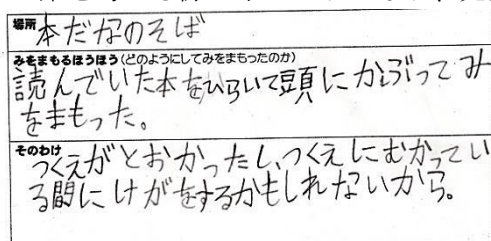 場所 本だなのそば
みをまもるほうほう(どのようにしてみをまもったのか)
読んでいた本をひらいて頭にかぶってみ
をまもった。
そのわけ
つくえがとおかったし、つくえにむかってい
る間にけがをするかもしれないから。